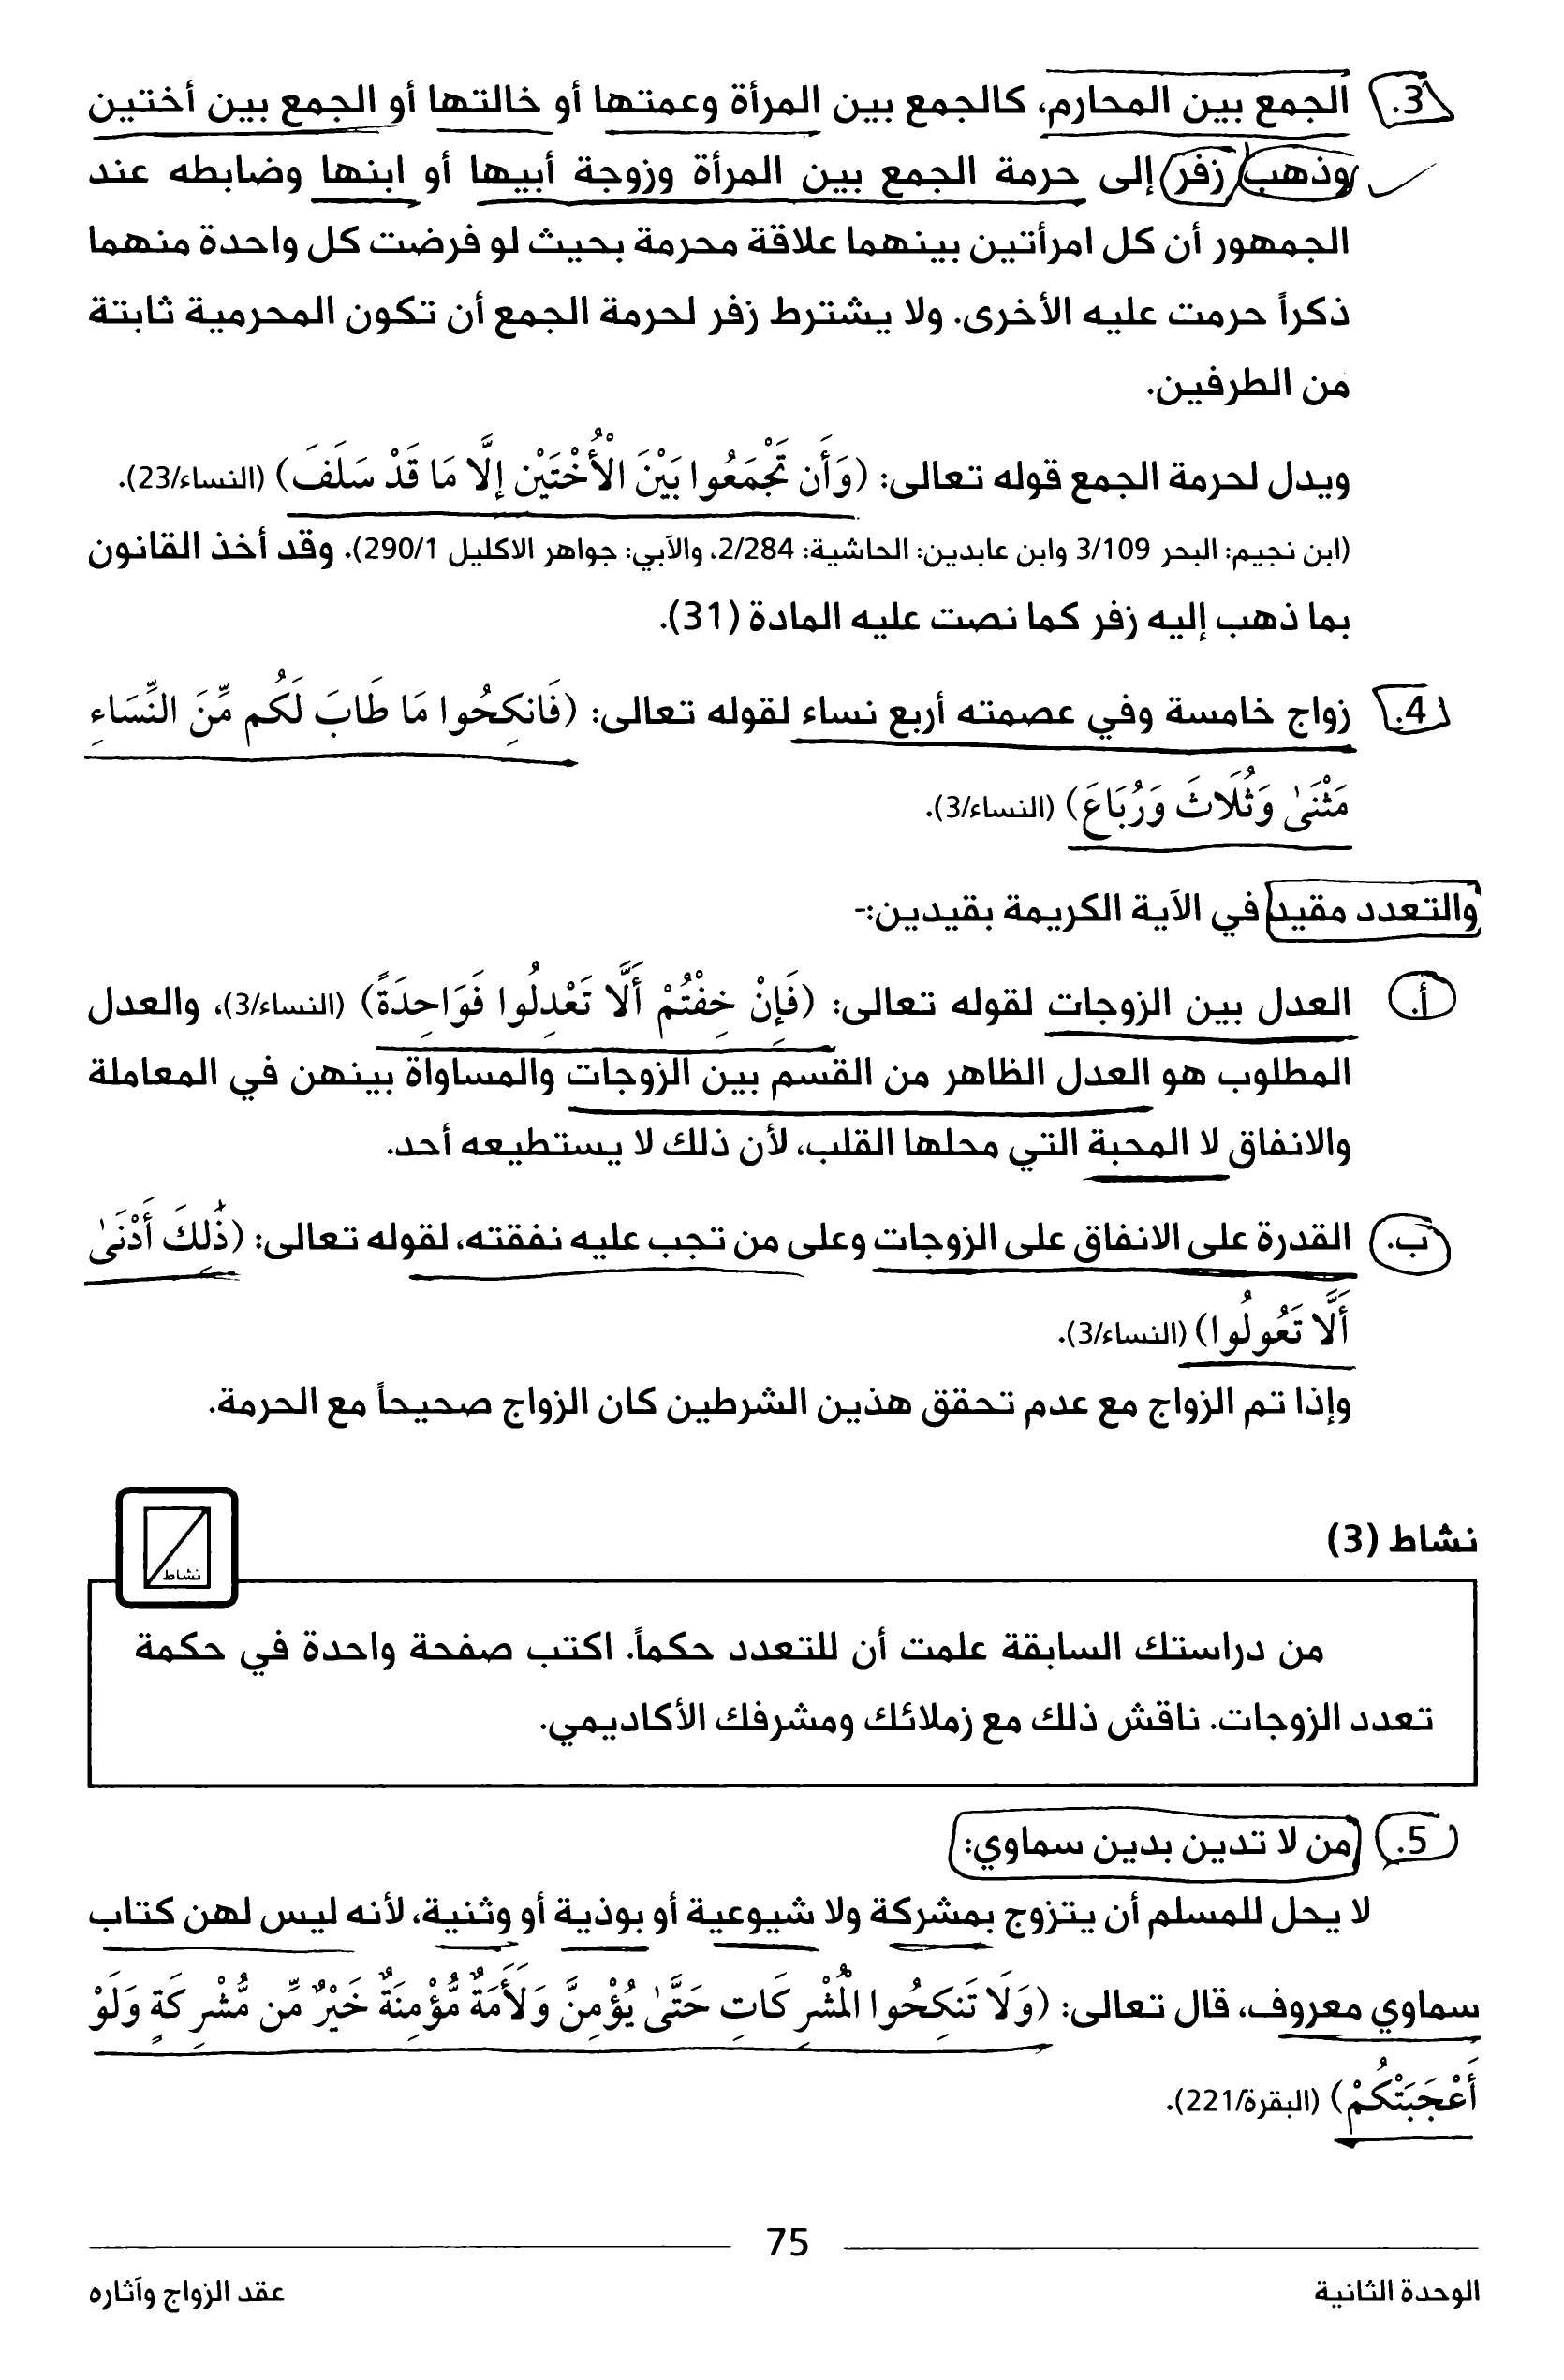 3. الجمع بين المحارم، كالجمع بين المرأة وعمتها أو خالتها أو الجمع بين أختين
وذهب زفر إلى حرمة الجمع بين المرأة وزوجة أبيها أو ابنها وضابطه عند
الجمهور أن كل امرأتين بينهما علاقة محرمة بحيث لو فرضت كل واحدة منهما
ذكراً حرمت عليه الأخرى. ولا يشترط زفر لحرمة الجمع أن تكون المحرمية ثابتة
من الطرفين.
ويدل لحرمة الجمع قوله تعالى: (وَأَن تَجْمَعُوا بَيْنَ الْأُخْتَيْنِ إِلَّا مَا قَدْ سَلَفَ) (النساء/23).
(ابن نجيم: البحر 3/109 وابن عابدين: الحاشية: 2/284، والآبي: جواهر الاكليل 290/1). وقد أخذ القانون
بما ذهب إليه زفر كما نصت عليه المادة (31).
4. زواج خامسة وفي عصمته أربع نساء لقوله تعالى: (فَانكِحُوا مَا طَابَ لَكُم مِّنَ النِّسَاءِ
مَثْنَىٰ وَثُلَاثَ وَرُبَاعَ) (النساء/3).
والتعدد مقيد في الآية الكريمة بقيدين:-
أ. العدل بين الزوجات لقوله تعالى: (فَإِنْ خِفْتُمْ أَلَّا تَعْدِلُوا فَوَاحِدَةً) (النساء/3)، والعدل
المطلوب هو العدل الظاهر من القسم بين الزوجات والمساواة بينهن في المعاملة
والانفاق لا المحبة التي محلها القلب، لأن ذلك لا يستطيعه أحد.
ب. القدرة على الانفاق على الزوجات وعلى من تجب عليه نفقته، لقوله تعالى: (ذَٰلِكَ أَدْنَىٰ
أَلَّا تَعُولُوا) (النساء/3).
وإذا تم الزواج مع عدم تحقق هذين الشرطين كان الزواج صحيحاً مع الحرمة.
نشاط (3)
نشاط
من دراستك السابقة علمت أن للتعدد حكماً. اكتب صفحة واحدة في حكمة
تعدد الزوجات. ناقش ذلك مع زملائك ومشرفك الأكاديمي.
5. من لا تدين بدين سماوي:
لا يحل للمسلم أن يتزوج بمشركة ولا شيوعية أو بوذية أو وثنية، لأنه ليس لهن كتاب
سماوي معروف، قال تعالى: (وَلَا تَنكِحُوا الْمُشْرِكَاتِ حَتَّىٰ يُؤْمِنَّ وَلَأَمَةٌ مُّؤْمِنَةٌ خَيْرٌ مِّن مُّشْرِكَةٍ وَلَوْ
أَعْجَبَتْكُمْ) (البقرة/221).
75
الوحدة الثانية
عقد الزواج وآثاره